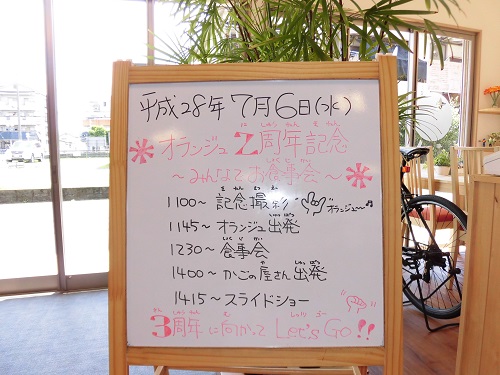 平成28年7月6日(水)
オランジュ2周年記念
～みんなでお食事会～
1100～ 記念撮影 オラジュ～♫
1145～オランジュ出発
1230～食事会
1400～かごの屋さん出発
1415～スライドショー
3周年に向かって Let's Go!!